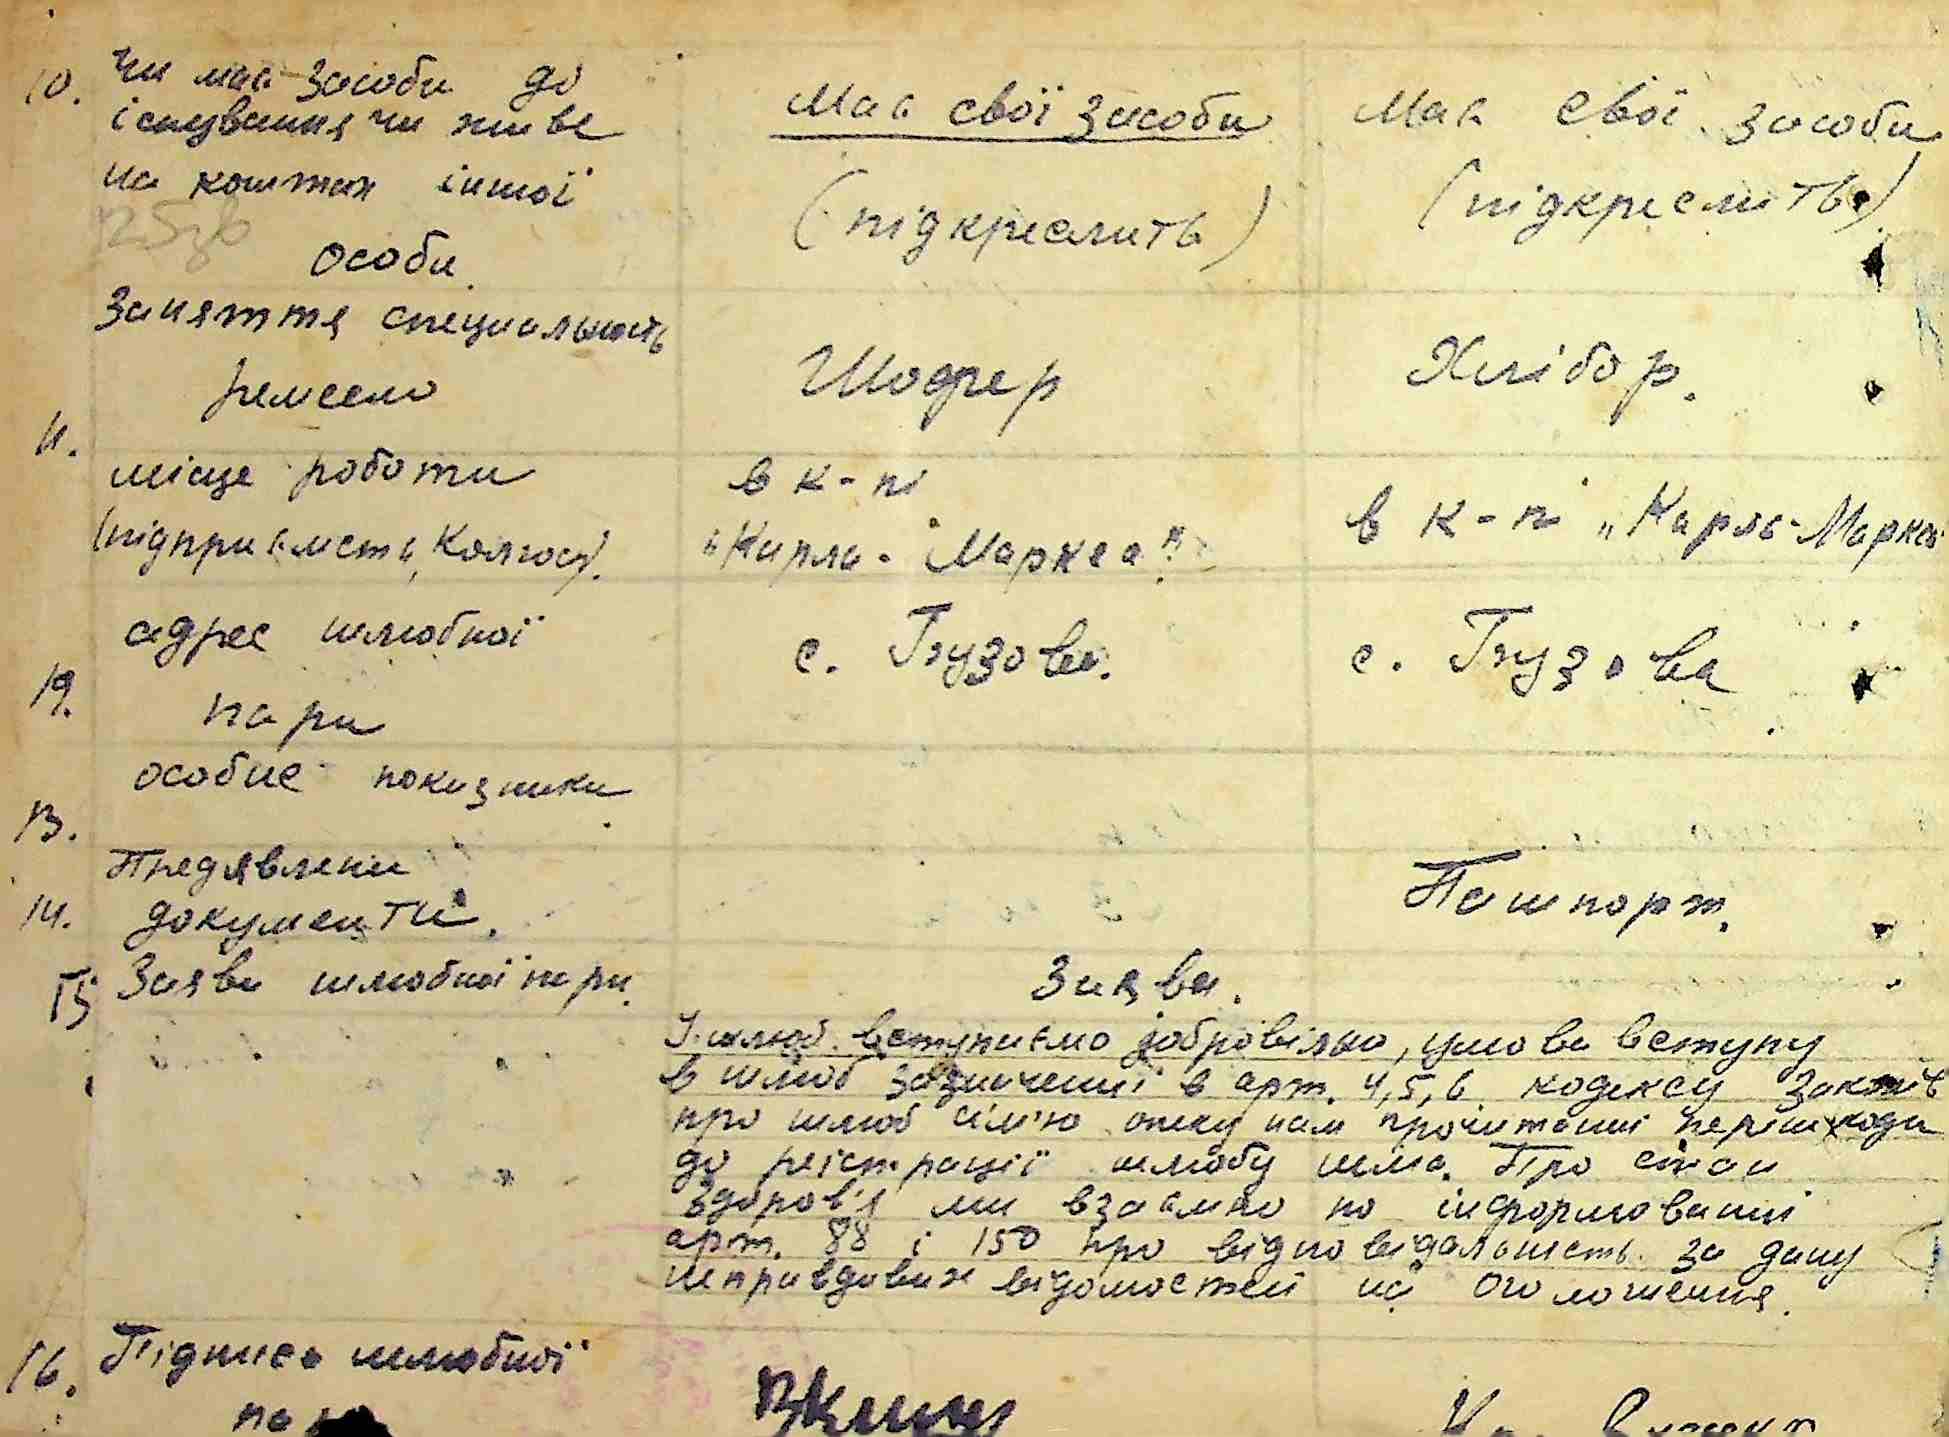 10. Чи має засоби до
існування чи живе
на коштах іншої
особи.
Має свої засоби
(підкреслить)
Має свої засоби
(підкреслить)
Заняття специальність
ремесло
Шофер
Хлібор.
11.
місце роботи
(підприємств, Колгосп).
в к-пі
"Карла-Маркса"
в к-пі "Карла-Маркса
адрес шлюбної
19.
пари
с. Грузова.
с. Грузова
13. особис показники
14. Предявлени
документи.
Пашпорт.
15 Заява шлюбної пари.
Заява.
У шлюб вступаємо добровільно, умови вступу
в шлюб зазначенні в арт. 4,5,6 кодексу законів
про шлюб сім'ю опеку нам прочитанні перешкоди
до реістрації шлюбу нема. Про стан
здоров'я ми взаємно по інформованні
арт. 88 і 150 про відповідальність за дачу
неправдивих відомостей нам оголошення.
16. Підписи шлюбної